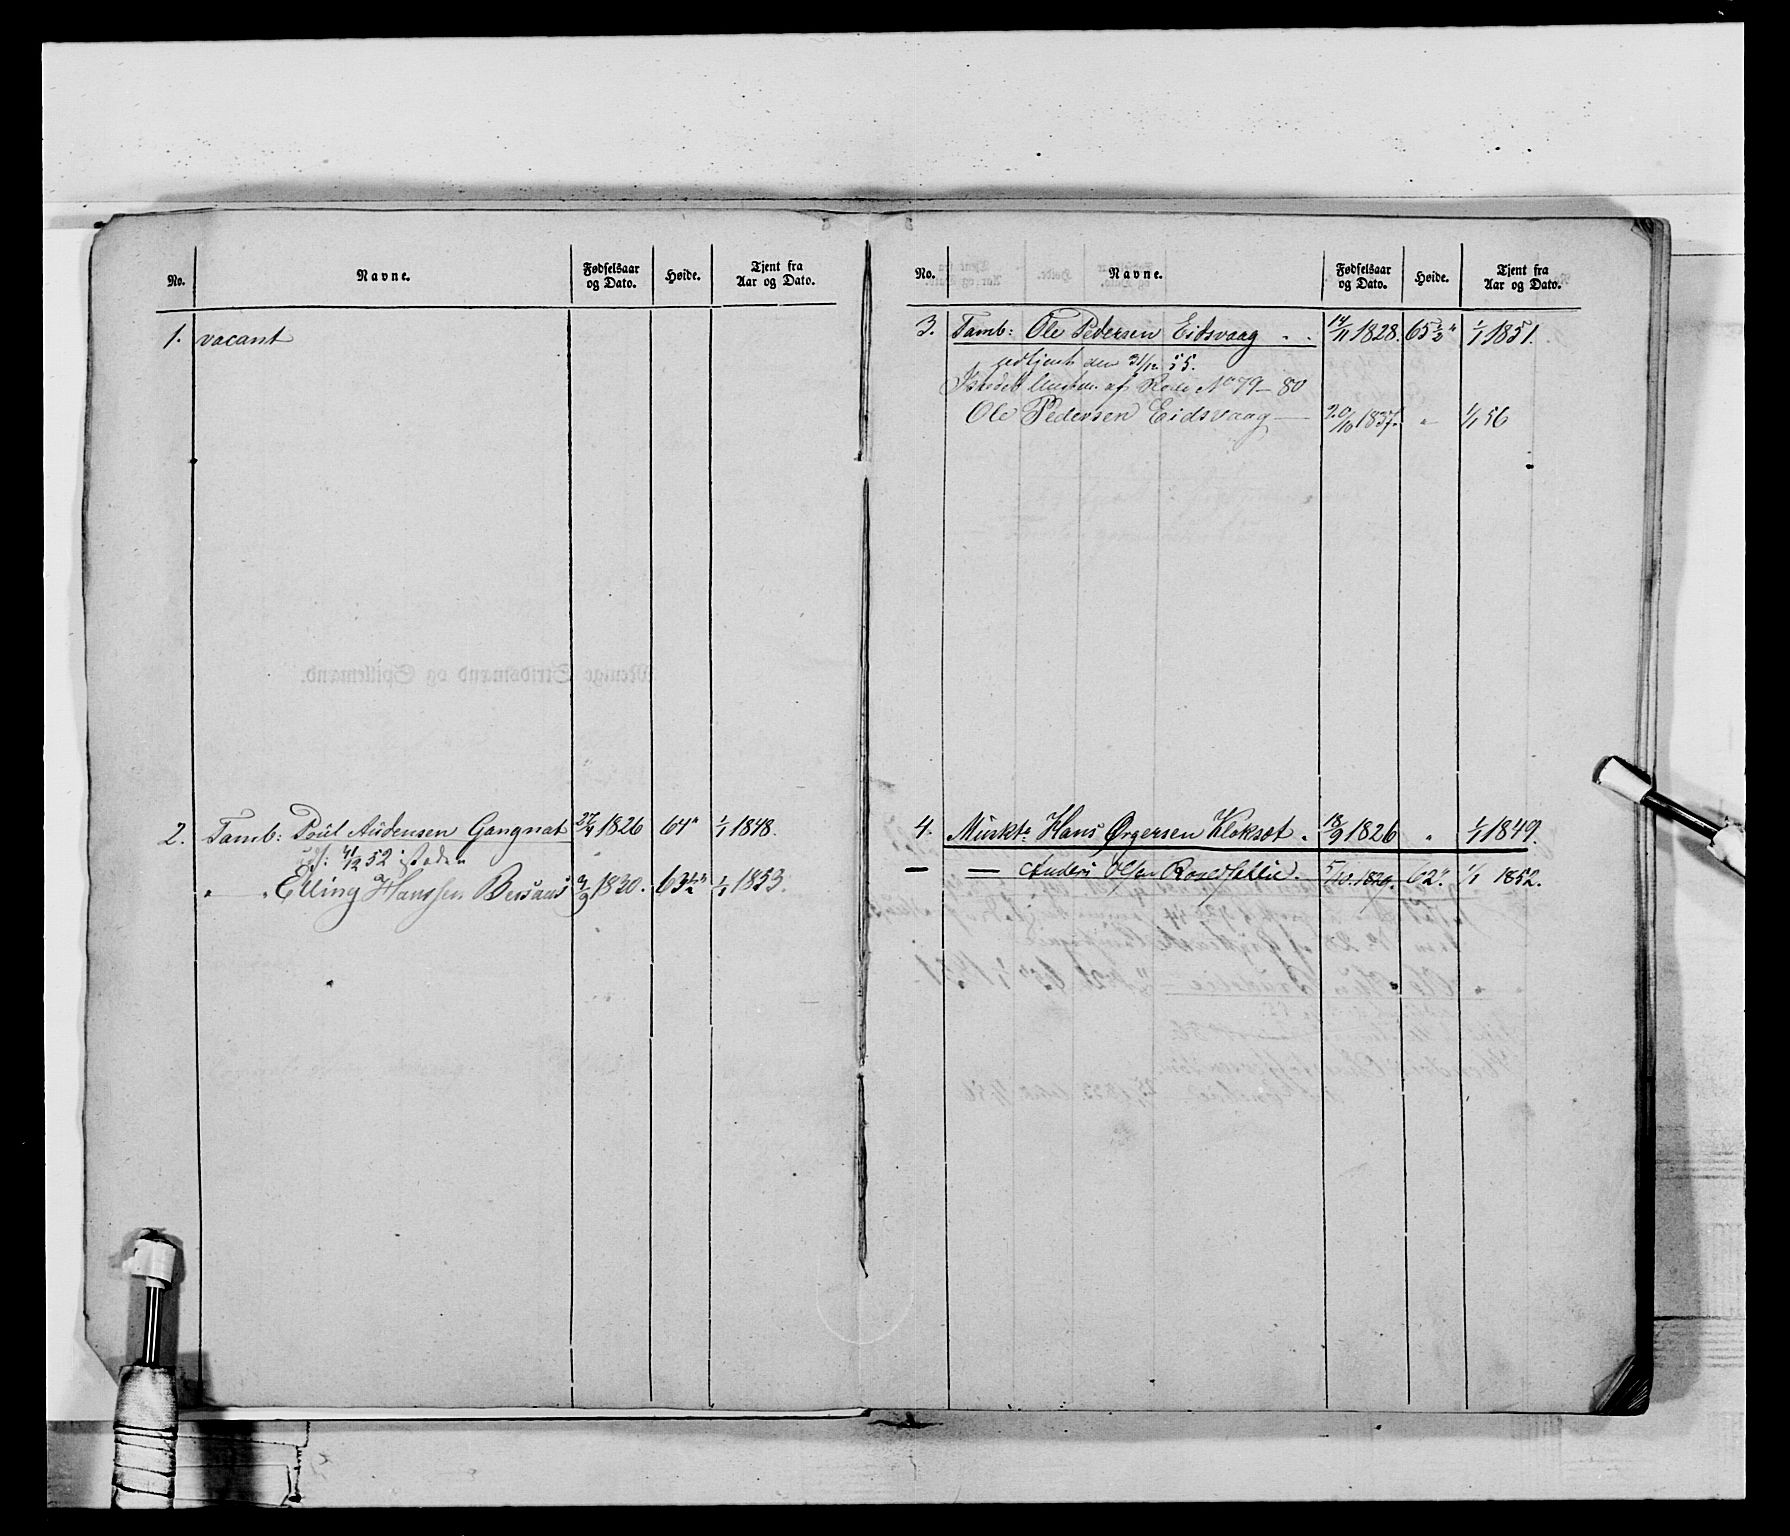 No. Navne. Fødselsaar og Dato. Høide. Tjent fra Aar og Dato.
1. vacant
2. Tamb: Poul Audensen Gangnat 27/4 1826 64" 1/1 1848.
udt: 31/12 52 isteden
" " Elling Hanssen 9/9 1830. 63 1/2" 1/1 1853.
No. Navne. Fødselsaar og Dato. Høide. Tjent fra Aar og Dato.
3. Tamb: Ole Pedersen Eidsvaag 14/11 1828. 65 1/2" 1/1 1851.
udtjent den 31/12 55.
af Rode No 79-80
Ole Pedersen Eidsvaag 20/10 1837. " 1/1 56
4. Muskt: Hans Ørgersen Kloksæt 18/9 1826 " 1/1 1849.
— — Anders Olsen 5/10 1829. 62" 1/1 1852.